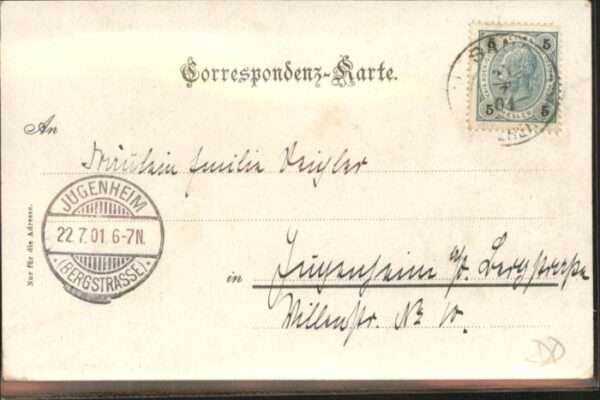 Correspondenz-Karte.
5 5
5 5
An
Fräulein Emilie Zeigler
JUGENHEIM
22.7.01. 6-7N.
(BERGSTRASSE)
Nur für die Adresse.
in Jugenheim a/d. Bergstrasse
Villenstr. No 10.